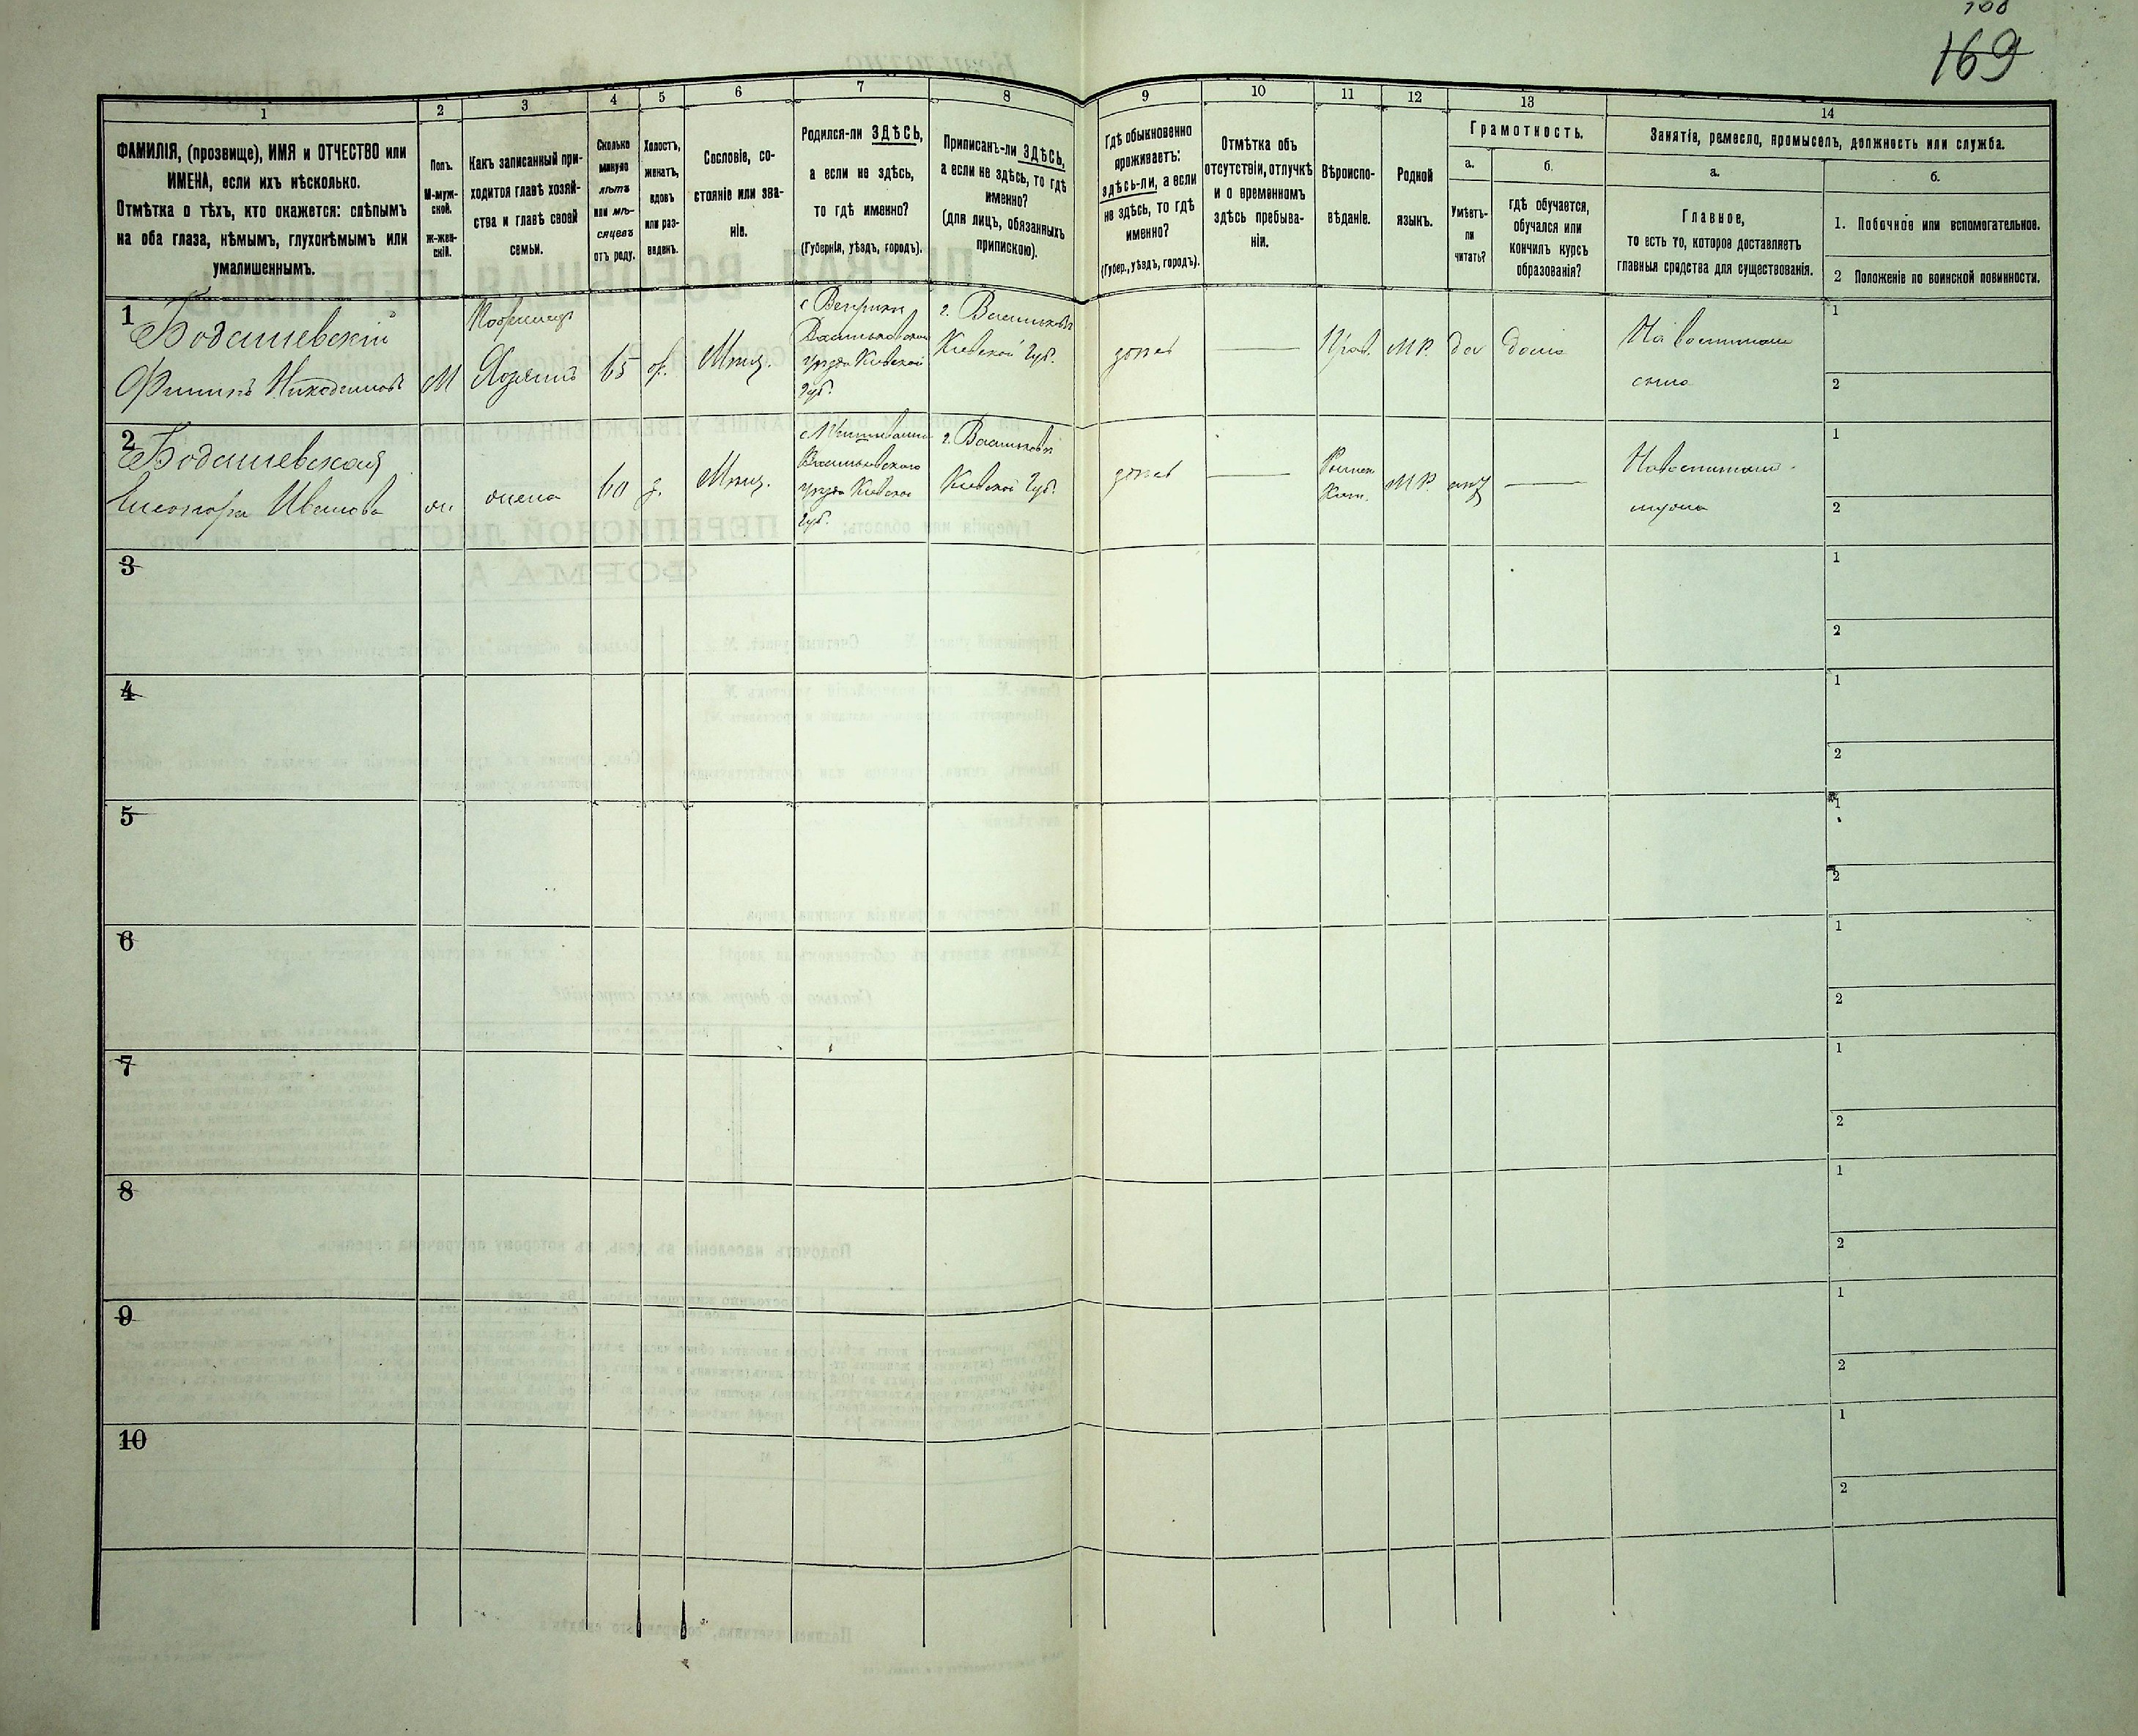 169
1
2
3
4
5
6
7
8
9
10
11
12
13
14
ФАМИЛІЯ, (прозвище), ИМЯ и ОТЧЕСТВО или
ИМЕНА, если ихъ нѣсколько.
Отмѣтка о тѣхъ, кто окажется: слѣпымъ
на оба глаза, нѣмымъ, глухонѣмымъ или
умалишеннымъ.
Полъ.
М-муж-
ской.
ж-жен-
скій.
Какъ записанный при-
ходится главѣ хозяй-
ства и главѣ своей
семьи.
Сколько
минуло
лѣтъ
или мѣ-
сяцевъ
отъ роду.
Холостъ,
женатъ,
вдовъ
или раз-
веденъ.
Сословіе, со-
стояніе или зва-
ніе.
Родился-ли ЗДѢСЬ,
а если не здѣсь,
то гдѣ именно?
(Губернія, уѣздъ, городъ).
Приписанъ-ли ЗДѢСЬ,
а если не здѣсь, то гдѣ
именно?
(для лицъ, обязанныхъ
припискою).
Гдѣ обыкновенно
проживаетъ:
здѣсь-ли, а если
не здѣсь, то гдѣ
именно?
(Губер., уѣздъ, городъ).
Отмѣтка объ
отсутствіи, отлучкѣ
и о временномъ
здѣсь пребыва-
ніи.
Вѣроиспо-
вѣданіе.
Родной
языкъ.
Грамотность.
а.
Умѣетъ-
ли
читать?
б.
гдѣ обучается,
обучался или
кончилъ курсъ
образованія?
Занятія, ремесло, промыселъ, должность или служба.
а.
Главное,
то есть то, которое доставляетъ
главныя средства для существованія.
б.
1. Побочное или вспомогательное.
2 Положеніе по воинской повинности.
1
Бодашевскій
Филипъ Никодимовъ
М
Хозяинъ
65
Мѣщ.
Васильковскаго
уѣзда Кіевской
Губ.
г. Васильковъ
Кіевской Губ.
здѣсь
Прав.
М.Р.
да
дома
1
2
2
Бодашевская
Иванова
ж
жена
60
з.
Мѣщ.
Васильковскаго
уѣзда Кіевской
Губ.
г. Васильковъ
Кіевской Губ.
здѣсь
Римск
Кат.
М.Р.
нѣт
1
2
3
1
2
4
1
2
5
1
2
6
1
2
7
1
2
8
1
2
9
1
2
10
1
2